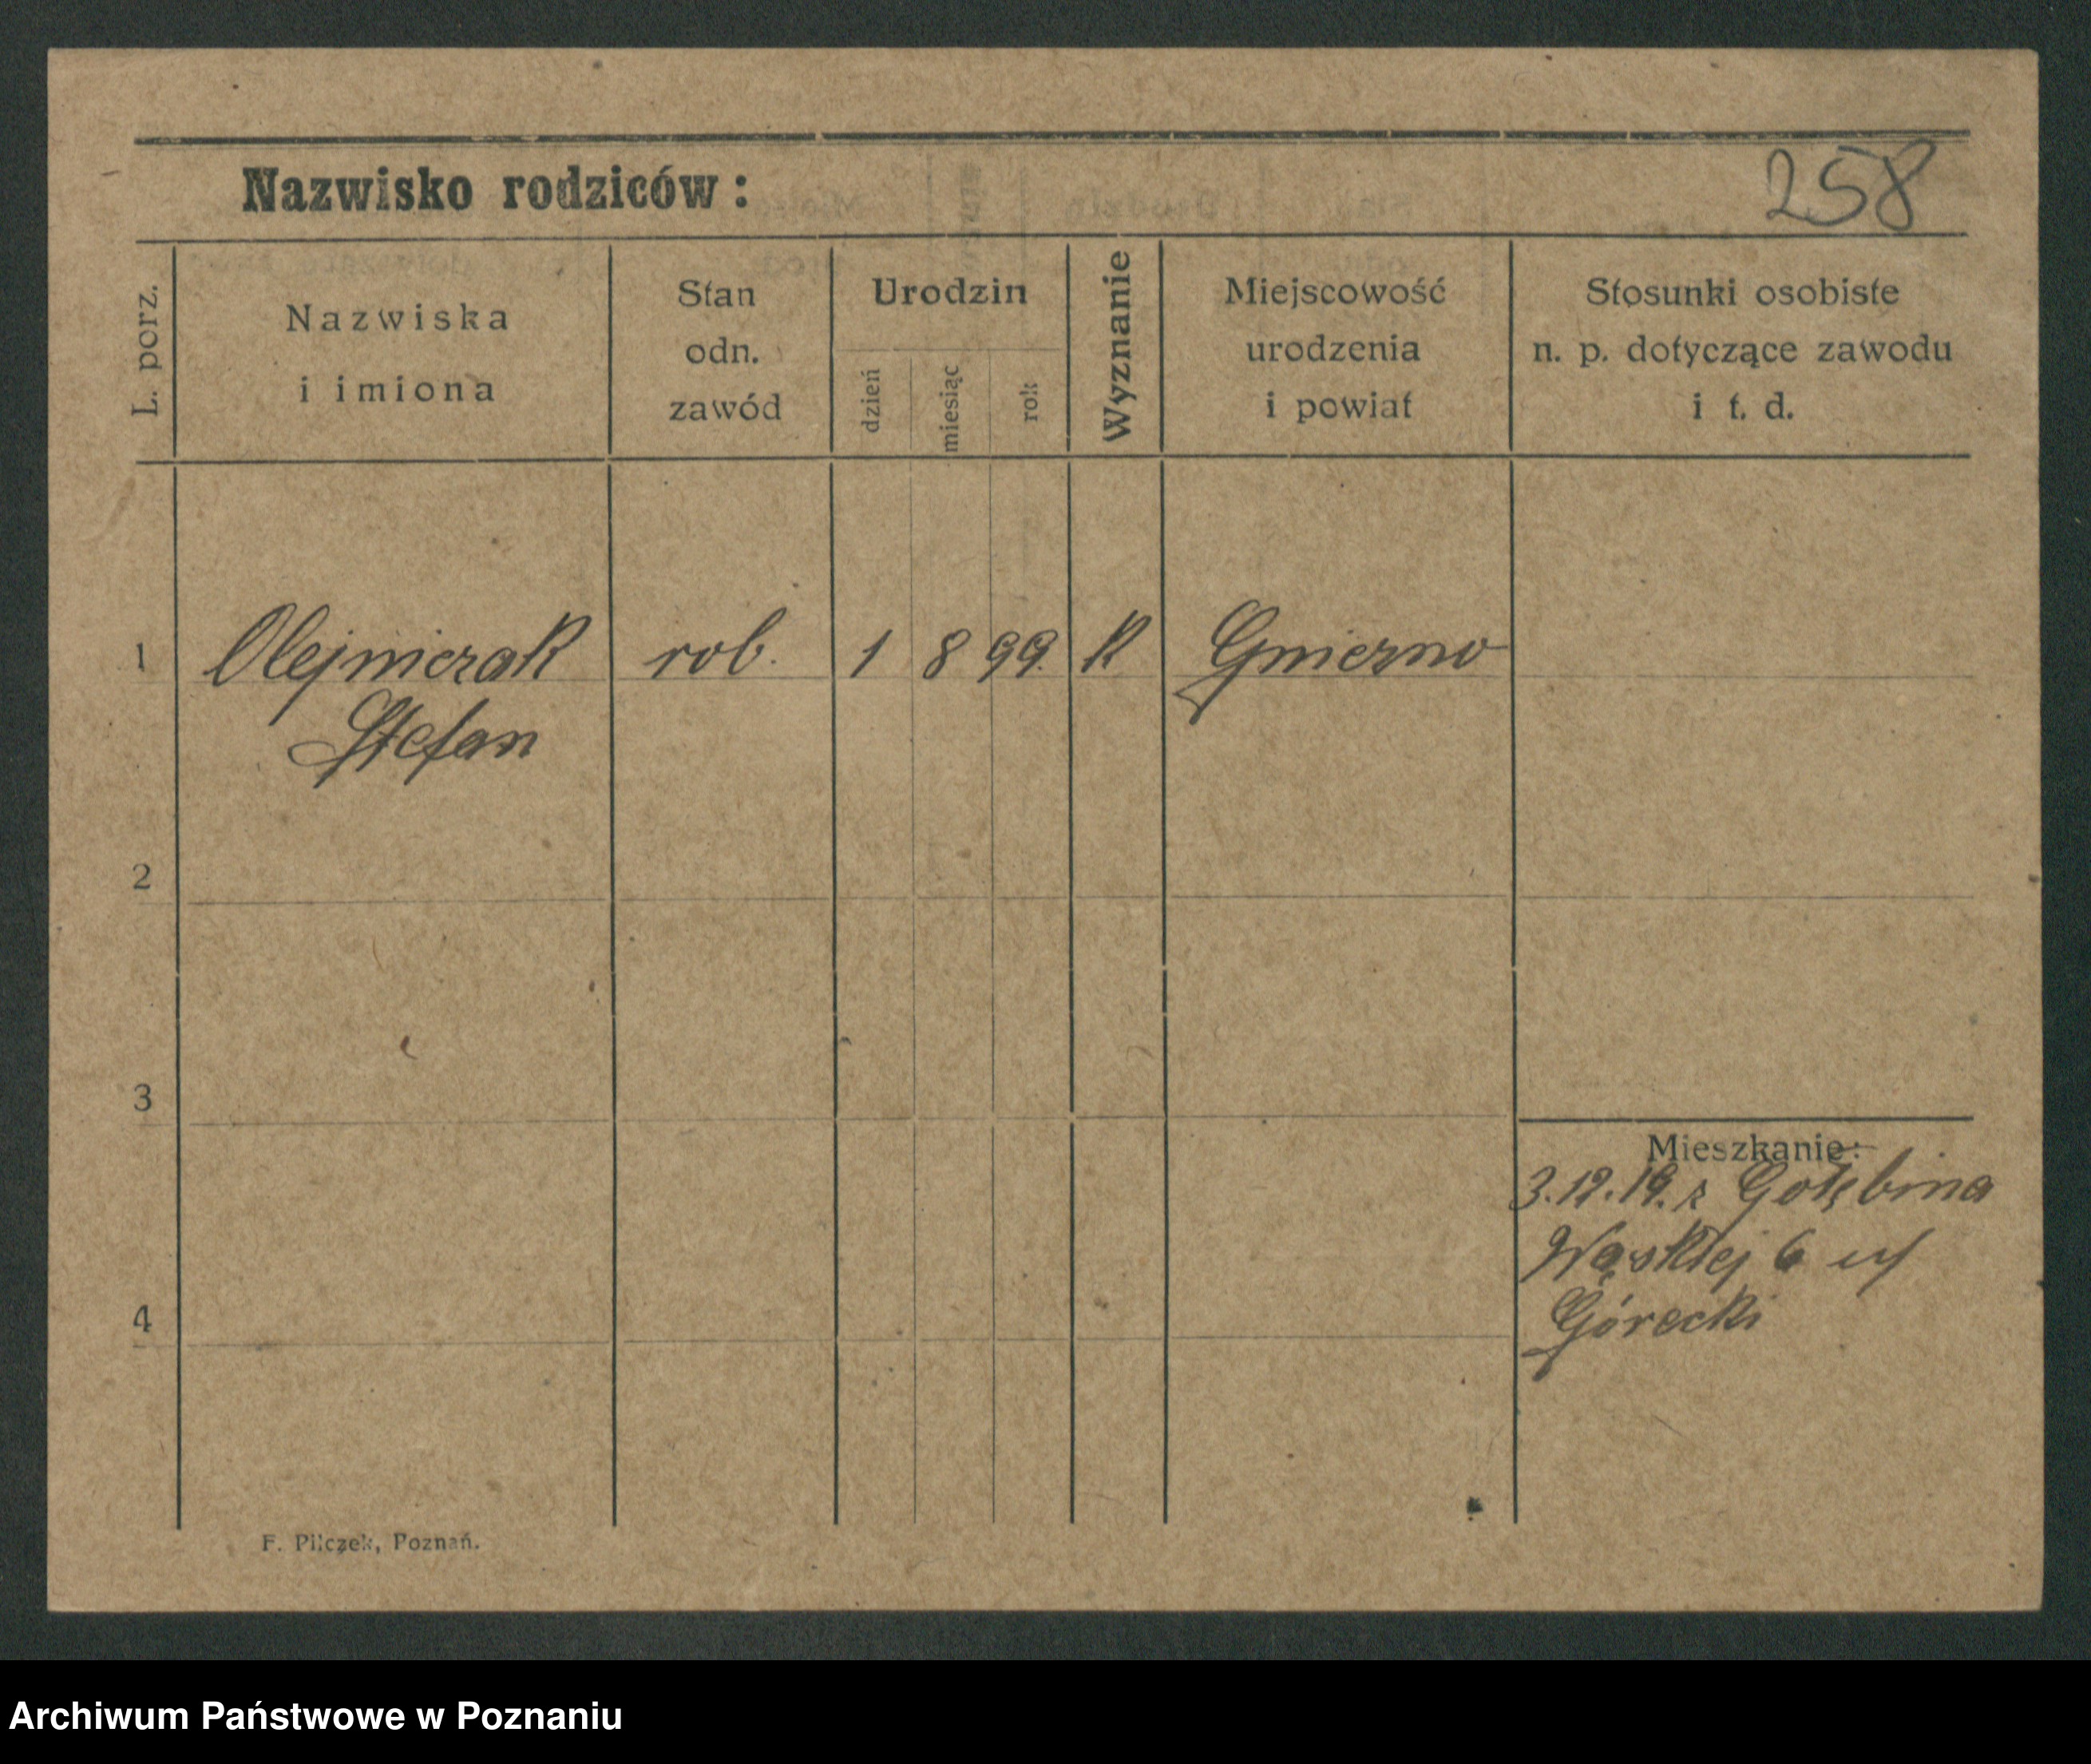 258
Nazwisko rodziców:
L. porz.
Nazwiska
i imiona
Stan
odn.
zawód
Urodzin
dzień
miesiąc
rok
Wyznanie
Miejscowość
urodzenia
i powiat
Stosunki osobiste
n. p. dotyczące zawodu
i t. d.
1 Olejniczak rob. 1 8 99. K Gniezno
Stefan
2
3
4
Mieszkanie:
3.12.19. z Gołębina
Wąskiej 6
Górecki
F. Pilczek, Poznań.
Archiwum Państwowe w Poznaniu